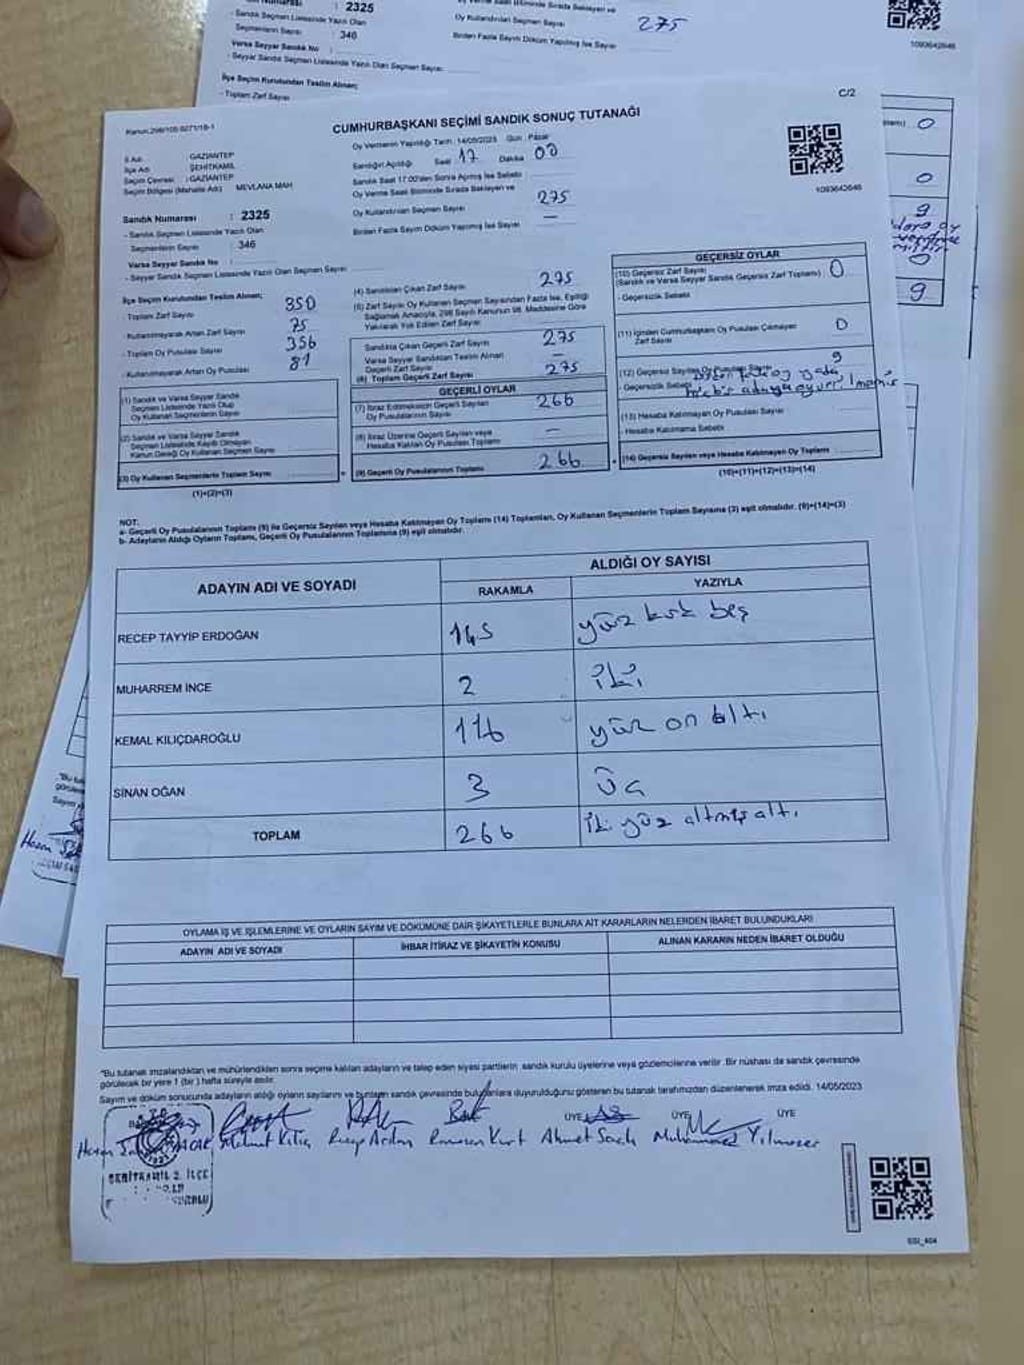 2325
- Sandık Seçmen Listesinde Yazılı Olan
Seçmenlerin Sayısı : 346
Versa Seyyar Sandık No :
- Seyyar Sandık Seçmen Listesinde Yazılı Olan Seçmen Sayısı
İlçe Seçim Kurulundan Teslim Alınan;
- Toplam Zarf Sayısı
Oy Kullandırılan Seçmen Sayısı 275
Birden Fazla Sayım Döküm Yapılmış İse Sayısı
1093642646
C/2
CUMHURBAŞKANI SEÇİMİ SANDIK SONUÇ TUTANAĞI
İl Adı : GAZİANTEP
İlçe Adı : ŞEHİTKAMİL
Seçim Çevresi : GAZİANTEP
Seçim Bölgesi (Mahalle Adı) : MEVLANA MAH
Sandık Numarası : 2325
- Sandık Seçmen Listesinde Yazılı Olan
Seçmenlerin Sayısı : 346
Varsa Seyyar Sandık No :
- Seyyar Sandık Seçmen Listesinde Yazılı Olan Seçmen Sayısı
Oy Vermenin Yapıldığı Tarih : 14/05/2023 Gün : Pazar
Sandığın Açıldığı Saat 17 Dakika 00
Sandık Saat 17.00'den Sonra Açılmış İse Sebebi
Oy Verme Saati Bitiminde Sırada Bekleyen ve
Oy Kullandırılan Seçmen Sayısı 275
Birden Fazla Sayım Döküm Yapılmış İse Sayısı —
1093642646
İlçe Seçim Kurulundan Teslim Alınan;
- Toplam Zarf Sayısı 350
- Kullanılmayarak Artan Zarf Sayısı 75
- Toplam Oy Pusulası Sayısı 356
- Kullanılmayarak Artan Oy Pusulası 81
(1) Sandık ve Varsa Seyyar Sandık
Seçmen Listesinde Yazılı Olup
Oy Kullanan Seçmenlerin Sayısı
(2) Sandık ve Varsa Seyyar Sandık
Seçmen Listesinde Kayıtlı Olmayan
Kanun Gereği Oy Kullanan Seçmen Sayısı
(3) Oy Kullanan Seçmenlerin Toplam Sayısı
(1)+(2)=(3)
(4) Sandıktan Çıkan Zarf Sayısı 275
(5) Zarf Sayısı Oy Kullanan Seçmen Sayısından Fazla İse, Eşitliği
Sağlamak Amacıyla, 298 Sayılı Kanunun 98. Maddesine Göre
Yakılarak Yok Edilen Zarf Sayısı
Sandıkta Çıkan Geçerli Zarf Sayısı 275
Varsa Seyyar Sandıktan Teslim Alınan
Geçerli Zarf Sayısı —
(6) Toplam Geçerli Zarf Sayısı 275
GEÇERLİ OYLAR
(7) İtiraz Edilmeksizin Geçerli Sayılan
Oy Pusulalarının Sayısı 266
(8) İtiraz Üzerine Geçerli Sayılan veya
Hesaba Katılan Oy Pusulası Toplamı —
(9) Geçerli Oy Pusulalarının Toplamı 266
GEÇERSİZ OYLAR
(10) Geçersiz Zarf Sayısı
(Sandık ve Varsa Seyyar Sandık Geçersiz Zarf Toplamı) 0
- Geçersizlik Sebebi
(11) İçinden Cumhurbaşkanı Oy Pusulası Çıkmayan
Zarf Sayısı 0
(12) Geçersiz Sayılan Oy Pusulası Sayısı 9
- Geçersizlik Sebebi
(13) Hesaba Katılmayan Oy Pusulası Sayısı
- Hesaba Katılmama Sebebi
(14) Geçersiz Sayılan veya Hesaba Katılmayan Oy Toplamı
(10)+(11)+(12)+(13)=(14)
NOT:
a- Geçerli Oy Pusulalarının Toplamı (9) ile Geçersiz Sayılan veya Hesaba Katılmayan Oy Toplamı (14) Toplamları, Oy Kullanan Seçmenlerin Toplam Sayısına (3) eşit olmalıdır. (9)+(14)=(3)
b- Adayların Aldığı Oyların Toplamı, Geçerli Oy Pusulalarının Toplamına (9) eşit olmalıdır.
ADAYIN ADI VE SOYADI ALDIĞI OY SAYISI
RAKAMLA YAZIYLA
RECEP TAYYİP ERDOĞAN 145 yüz kırk beş
MUHARREM İNCE 2 iki
KEMAL KILIÇDAROĞLU 116 yüz on altı
SİNAN OĞAN 3 üç
TOPLAM 266 iki yüz altmış altı
OYLAMA İŞ VE İŞLEMLERİNE VE OYLARIN SAYIM VE DÖKÜMÜNE DAİR ŞİKAYETLERLE BUNLARA AİT KARARLARIN NELERDEN İBARET BULUNDUKLARI
ADAYIN ADI VE SOYADI İHBAR İTİRAZ VE ŞİKAYETİN KONUSU ALINAN KARARIN NEDEN İBARET OLDUĞU
"Bu tutanak imzalandıktan ve mühürlendikten sonra seçime katılan adayların ve talep eden siyasi partilerin sandık kurulu üyelerine veya gözlemcilerine verilir. Bir nüshası da sandık çevresinde
görülecek bir yere 1 (bir) hafta süreyle asılır.
Sayım ve döküm sonucunda adayların aldığı oyların sayılarını ve bunların sandık çevresinde bulunanlara duyurulduğunu gösteren bu tutanak tarafımızdan düzenlenerek imza edildi. 14/05/2023
ÜYE ÜYE ÜYE
Mehmet Kılıç Recep Arslan Ramazan Kurt Ahmet Muhammed Yılmazer
ŞEHİTKAMİL 2. İLÇE